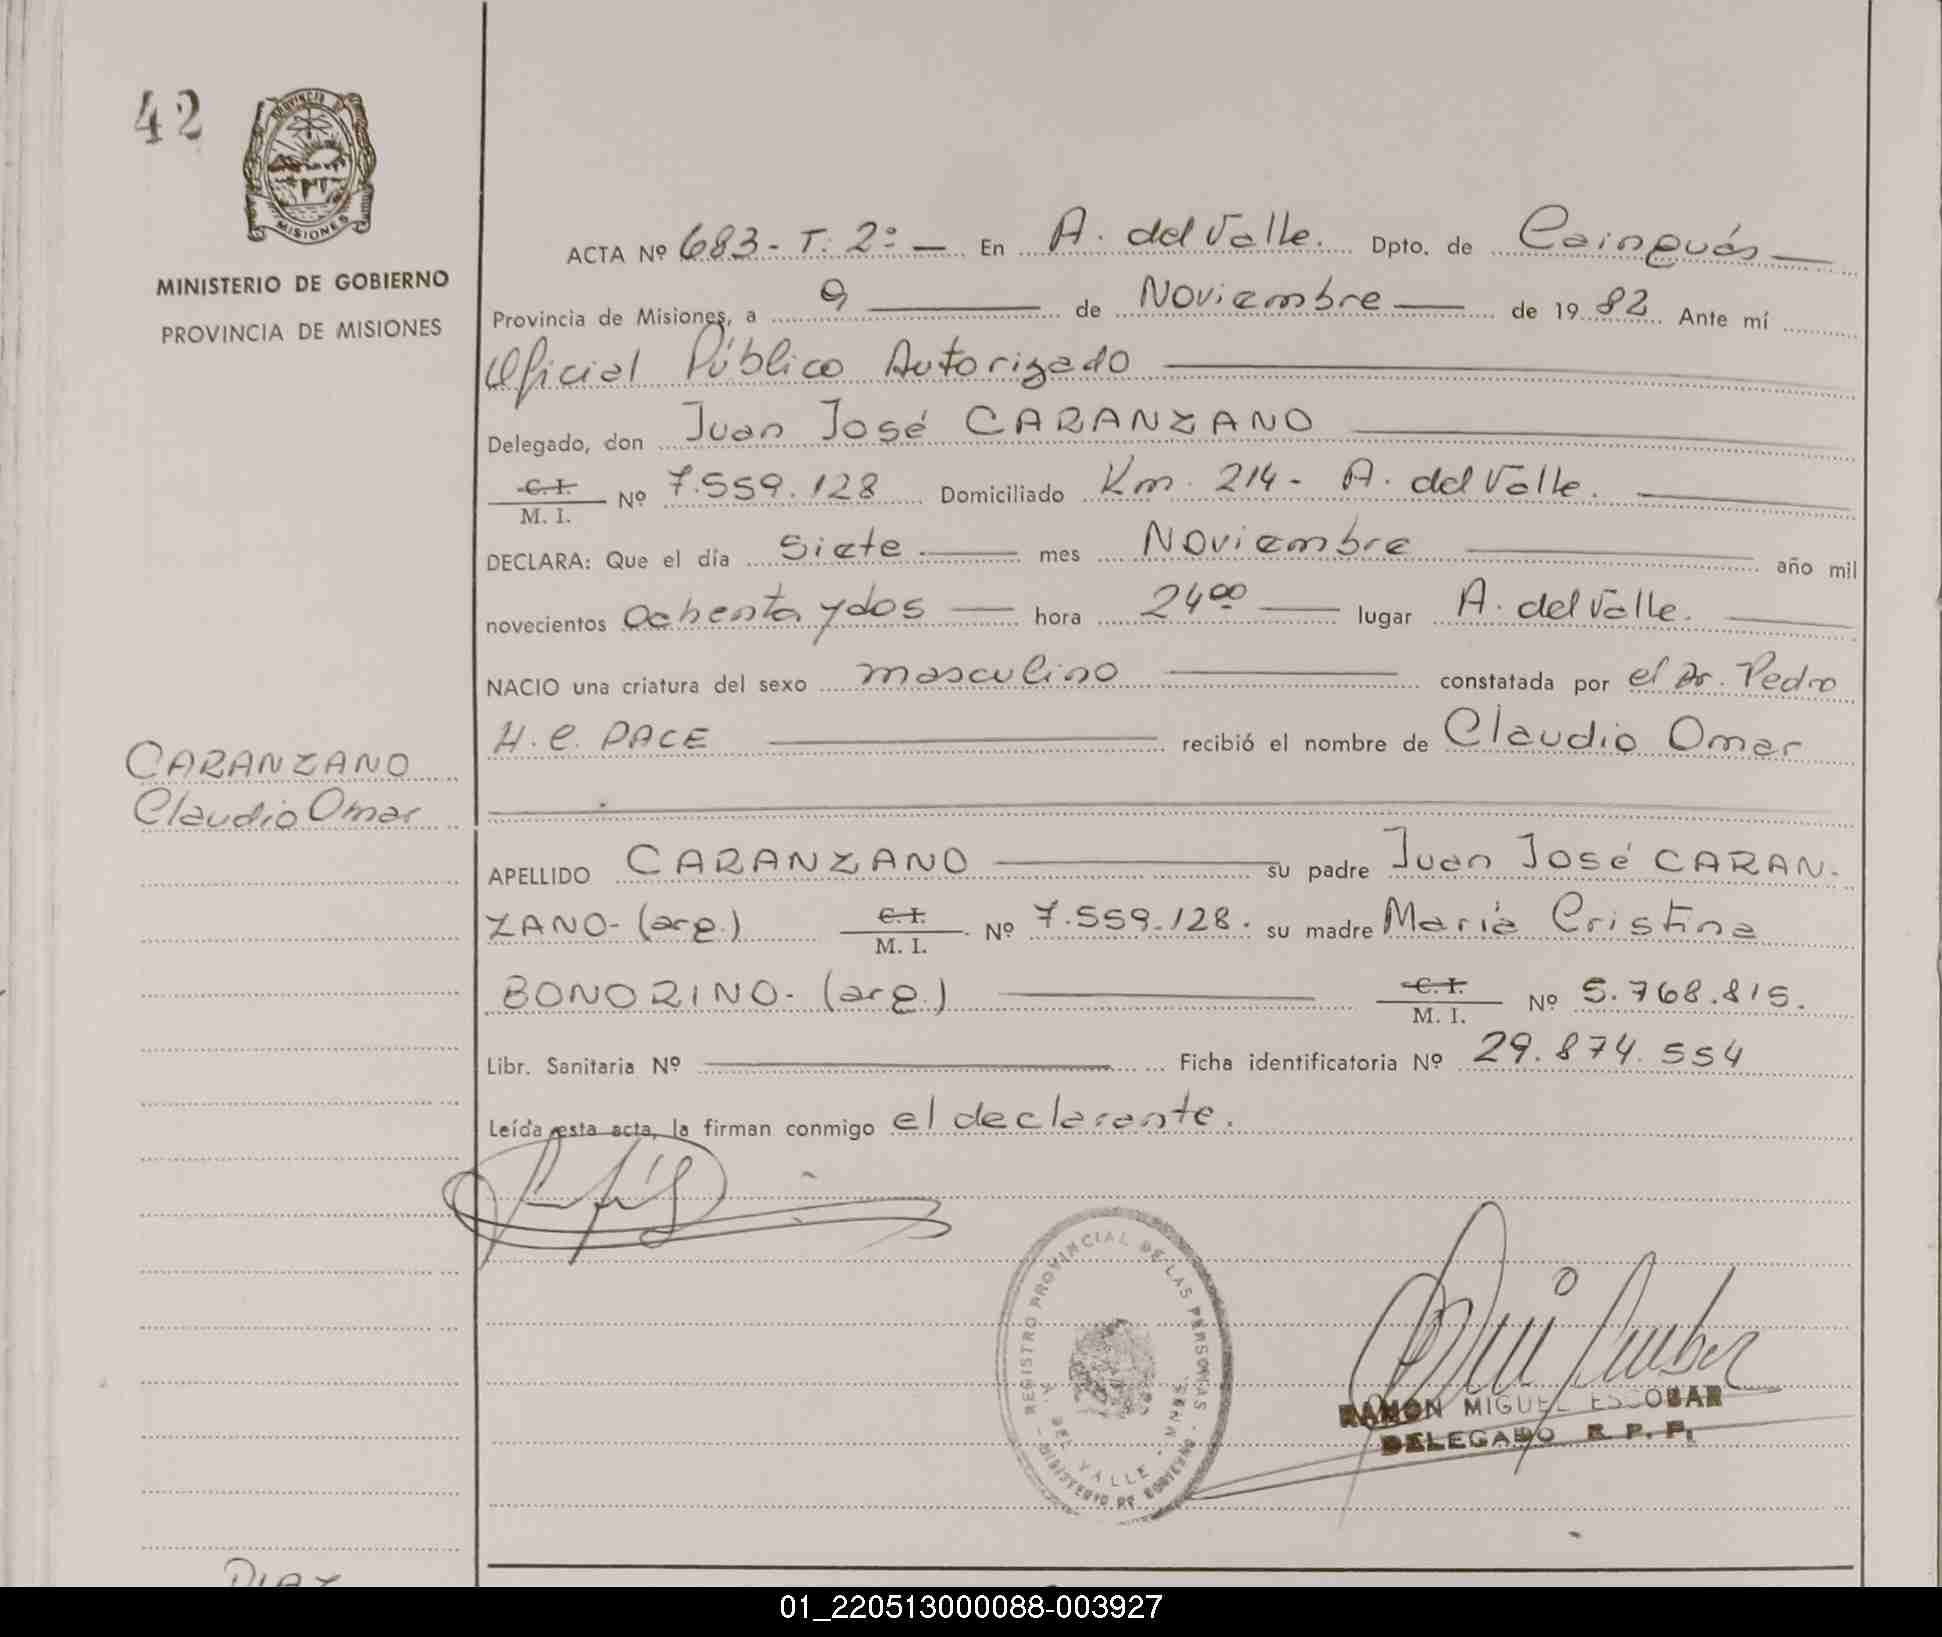 42
PROVINCIA DE
MISIONES
MINISTERIO DE GOBIERNO
PROVINCIA DE MISIONES
ACTA Nº 683- T. 2º — En A. del Valle. Dpto. de Cainguás —
Provincia de Misiones, a 9 — de Noviembre — de 19 82 Ante mí
Oficial Público Autorizado —
Delegado, don Juan José CARANZANO —
C. I. / M. I. Nº 7.559.128 Domiciliado Km. 214- A. del Valle. —
DECLARA: Que el día siete — mes Noviembre — año mil
novecientos ochenta y dos — hora 24⁰⁰ — lugar A. del Valle. —
NACIO una criatura del sexo masculino — constatada por el Dr. Pedro
H. C. PACE — recibió el nombre de Claudio Omar
CARANZANO
Claudio Omar
APELLIDO CARANZANO — su padre Juan José CARAN-
ZANO- (arg.) C. I. / M. I. Nº 7.559.128. su madre María Cristina
BONORINO- (arg.) — C. I. / M. I. Nº 5.768.815.
Libr. Sanitaria Nº — Ficha identificatoria Nº 29.874.554
Leída esta acta, la firman conmigo el declarante.
REGISTRO PROVINCIAL DE LAS PERSONAS - MINISTERIO DE GOBIERNO -
A. DEL VALLE -
RAMON MIGUEL ESCOBAR
DELEGADO R. P. P.
DIAZ
01_220513000088-003927